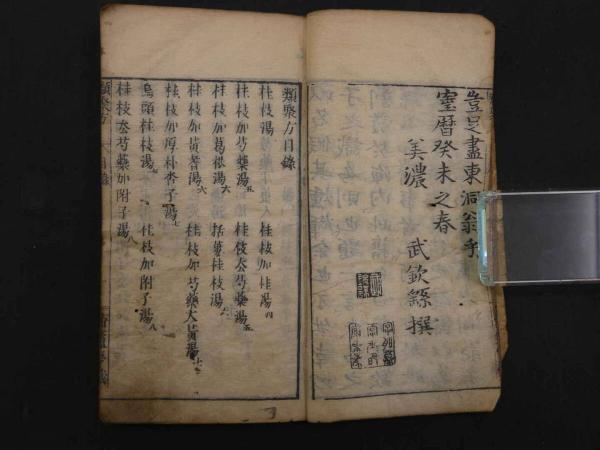 豈足盡東洞翁乎
寶曆癸未之春
美濃 武欽繇撰
類聚方目錄
桂枝湯 桂枝加桂湯四
桂枝加芍藥湯五
桂枝加葛根湯六 括蔞桂枝湯
桂枝加黃耆湯六 桂枝加芍藥大黃湯
桂枝加厚朴杏子湯七
烏頭桂枝湯 桂枝加附子湯八
桂枝去芍藥加附子湯八
類聚方 目錄